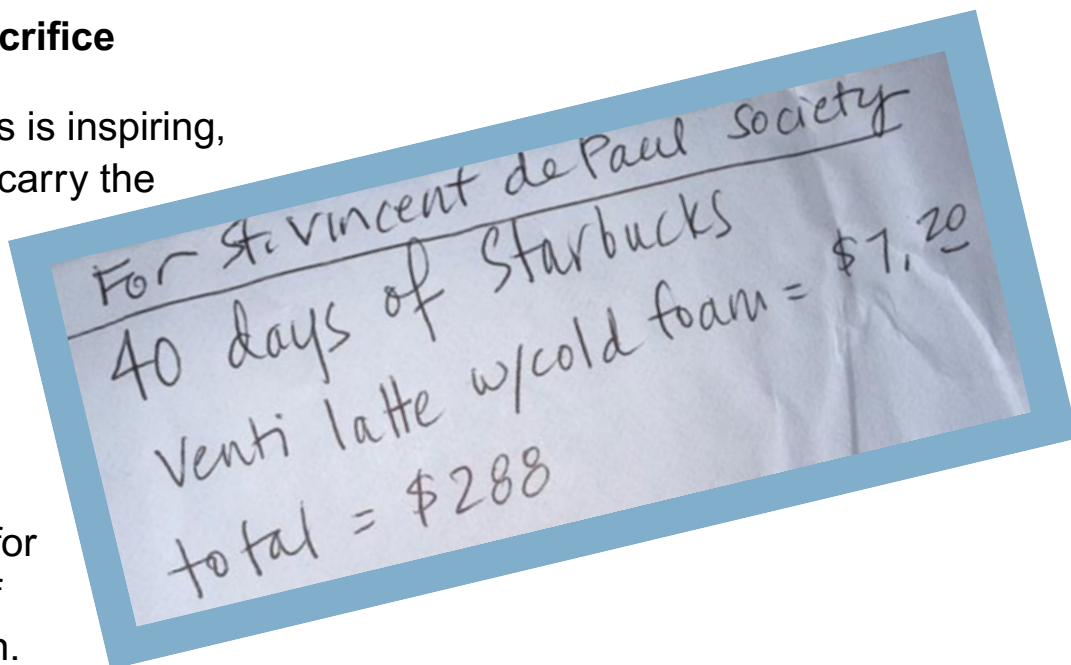 crifice
s is inspiring,
carry the
For St. Vincent de Paul Society
40 days of Starbucks
Venti latte w/cold foam = $7.20
total = $288
for
f
n.